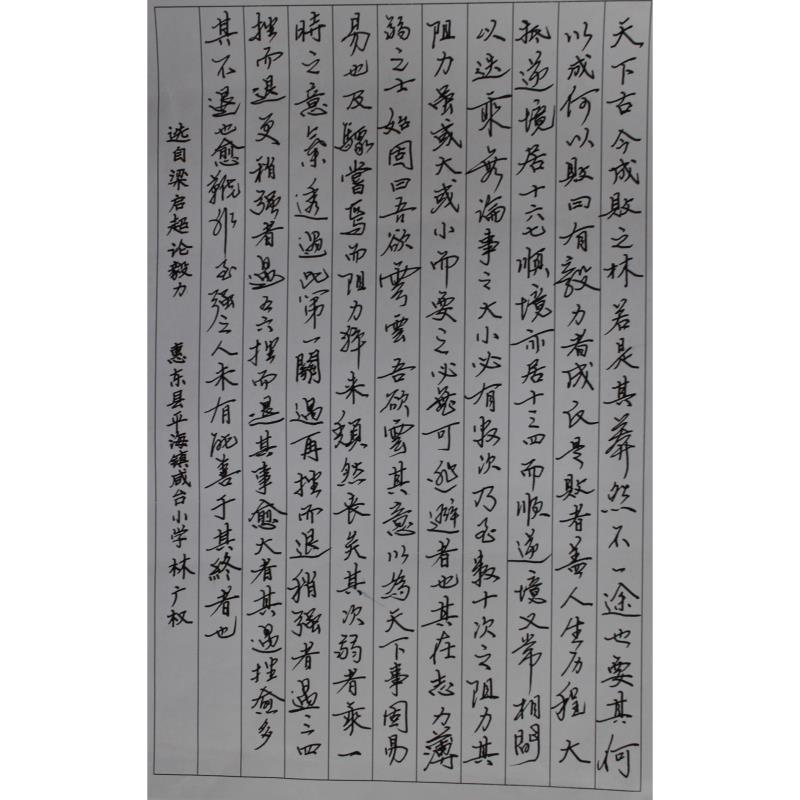 天下古今成败之林若是其莽然不一途也要其何
以成何以败曰有毅力者成反是败者盖人生历程大
抵逆境居十六七顺境亦居十三四而顺逆境又常相間
以迭乘无論事之大小必有数次乃至数十次之阻力其
阻力虽或大或小而要之必無可逃避者也其在志力薄
弱之士始固曰吾欲雲雲吾欲雲其意以為天下事固易
易也及驟嘗焉而阻力猝来頽然丧矣其次弱者乘一
時之意氣透過此第一關遇再挫而退稍强者遇三四
挫而退更稍强者遇五六挫而退其事愈大者其遇挫愈多
其不退也愈難非至强之人未有能善于其終者也
选自梁启超论毅力 惠东县平海镇咸台小学 林广权